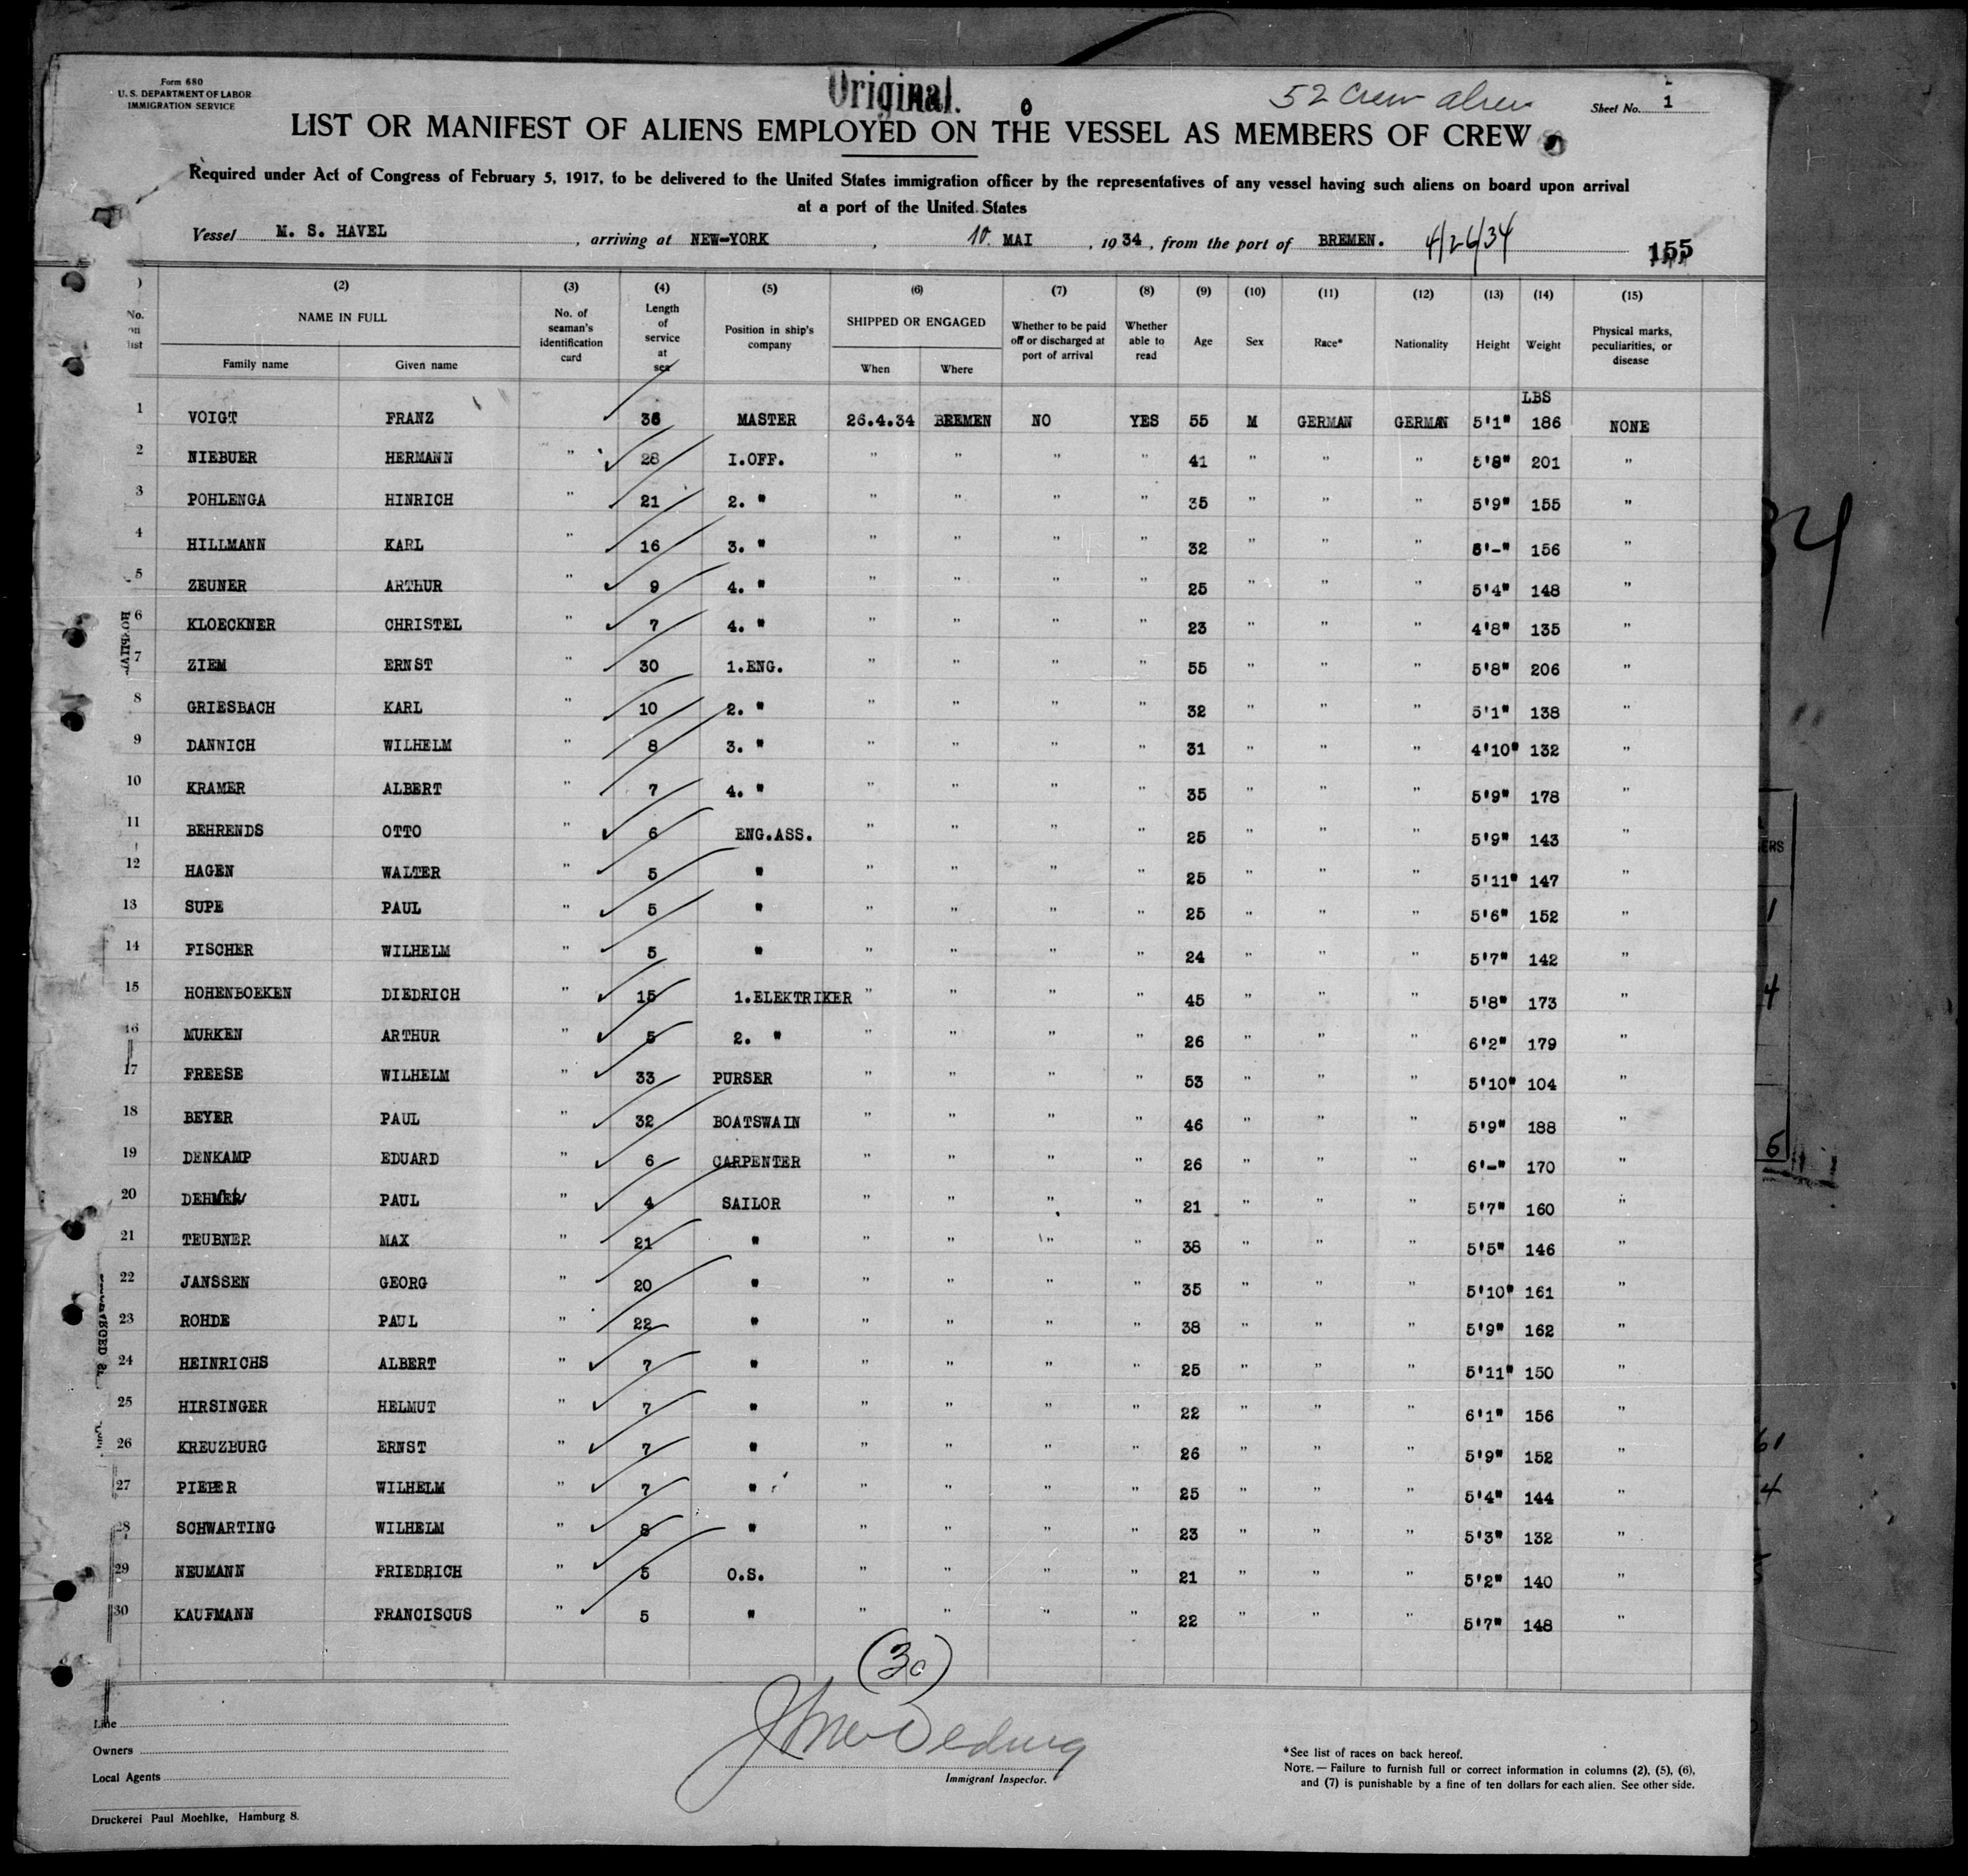 Form 680
U. S. DEPARTMENT OF LABOR
IMMIGRATION SERVICE
Original.
52 Crew alien
Sheet No. 1
LIST OR MANIFEST OF ALIENS EMPLOYED ON THE VESSEL AS MEMBERS OF CREW
Required under Act of Congress of February 5, 1917, to be delivered to the United States immigration officer by the representatives of any vessel having such aliens on board upon arrival
at a port of the United States
Vessel M. S. HAVEL, arriving at NEW-YORK, 10. MAI, 1934, from the port of BREMEN. 4/26/34
155
(2) (3) (4) (5) (6) (7) (8) (9) (10) (11) (12) (13) (14) (15)
No. on list NAME IN FULL Family name Given name No. of seaman's identification card Length of service at sea Position in ship's company SHIPPED OR ENGAGED When Where Whether to be paid off or discharged at port of arrival Whether able to read Age Sex Race* Nationality Height Weight Physical marks, peculiarities, or disease
LBS
1 VOIGT FRANZ 36 MASTER 26.4.34 BREMEN NO YES 55 M GERMAN GERMAN 5'1" 186 NONE
2 NIEBUER HERMANN " 28 I.OFF. " " " " 41 " " " 5'8" 201 "
3 POHLENGA HINRICH " 21 2. " " " " " 35 " " " 5'9" 155 "
4 HILLMANN KARL " 16 3. " " " " " 32 " " " 156 "
5 ZEUNER ARTHUR " 9 4. " " " " " 25 " " " 5'4" 148 "
6 KLOECKNER CHRISTEL " 7 4. " " " " " 23 " " " 4'8" 135 "
7 ZIEM ERNST " 30 1.ENG. " " " " 55 " " " 5'8" 206 "
8 GRIESBACH KARL " 10 2. " " " " " 32 " " " 5'1" 138 "
9 DANNICH WILHELM " 8 3. " " " " " 31 " " " 4'10" 132 "
10 KRAMER ALBERT " 7 4. " " " " " 35 " " " 5'9" 178 "
11 BEHRENDS OTTO " 6 ENG.ASS. " " " " 25 " " " 5'9" 143 "
12 HAGEN WALTER " 5 " " " " " 25 " " " 5'11" 147 "
13 SUPE PAUL " 5 " " " " " 25 " " " 5'6" 152 "
14 FISCHER WILHELM " 5 " " " " " 24 " " " 5'7" 142 "
15 HOHENBOEKEN DIEDRICH " 15 1.ELEKTRIKER " " " " 45 " " " 5'8" 173 "
16 MURKEN ARTHUR " 5 2. " " " " " 26 " " " 6'2" 179 "
17 FREESE WILHELM " 33 PURSER " " " " 53 " " " 5'10" 104 "
18 BEYER PAUL " 32 BOATSWAIN " " " " 46 " " " 5'9" 188 "
19 DENKAMP EDUARD " 6 CARPENTER " " " " 26 " " " 6'-" 170 "
20 PAUL " 4 SAILOR " " " " 21 " " " 5'7" 160 "
21 TEUBNER MAX " 21 " " " " " 38 " " " 5'5" 146 "
22 JANSSEN GEORG " 20 " " " " " 35 " " " 5'10" 161 "
23 ROHDE PAUL " 22 " " " " " 38 " " " 5'9" 162 "
24 HEINRICHS ALBERT " 7 " " " " " 25 " " " 5'11" 150 "
25 HIRSINGER HELMUT " 7 " " " " " 22 " " " 6'1" 156 "
26 KREUZBURG ERNST " 7 " " " " " 26 " " " 5'9" 152 "
27 PIEPER WILHELM " 7 " " " " " 25 " " " 5'4" 144 "
28 SCHWARTING WILHELM " 8 " " " " " 23 " " " 5'3" 132 "
29 NEUMANN FRIEDRICH " 5 O.S. " " " " 21 " " " 5'2" 140 "
30 KAUFMANN FRANCISCUS " 5 " " " " " 22 " " " 5'7" 148 "
(30)
Line
Owners
Local Agents
Immigrant Inspector.
*See list of races on back hereof.
NOTE. — Failure to furnish full or correct information in columns (2), (5), (6),
and (7) is punishable by a fine of ten dollars for each alien. See other side.
Druckerei Paul Moehlke, Hamburg 8.
34